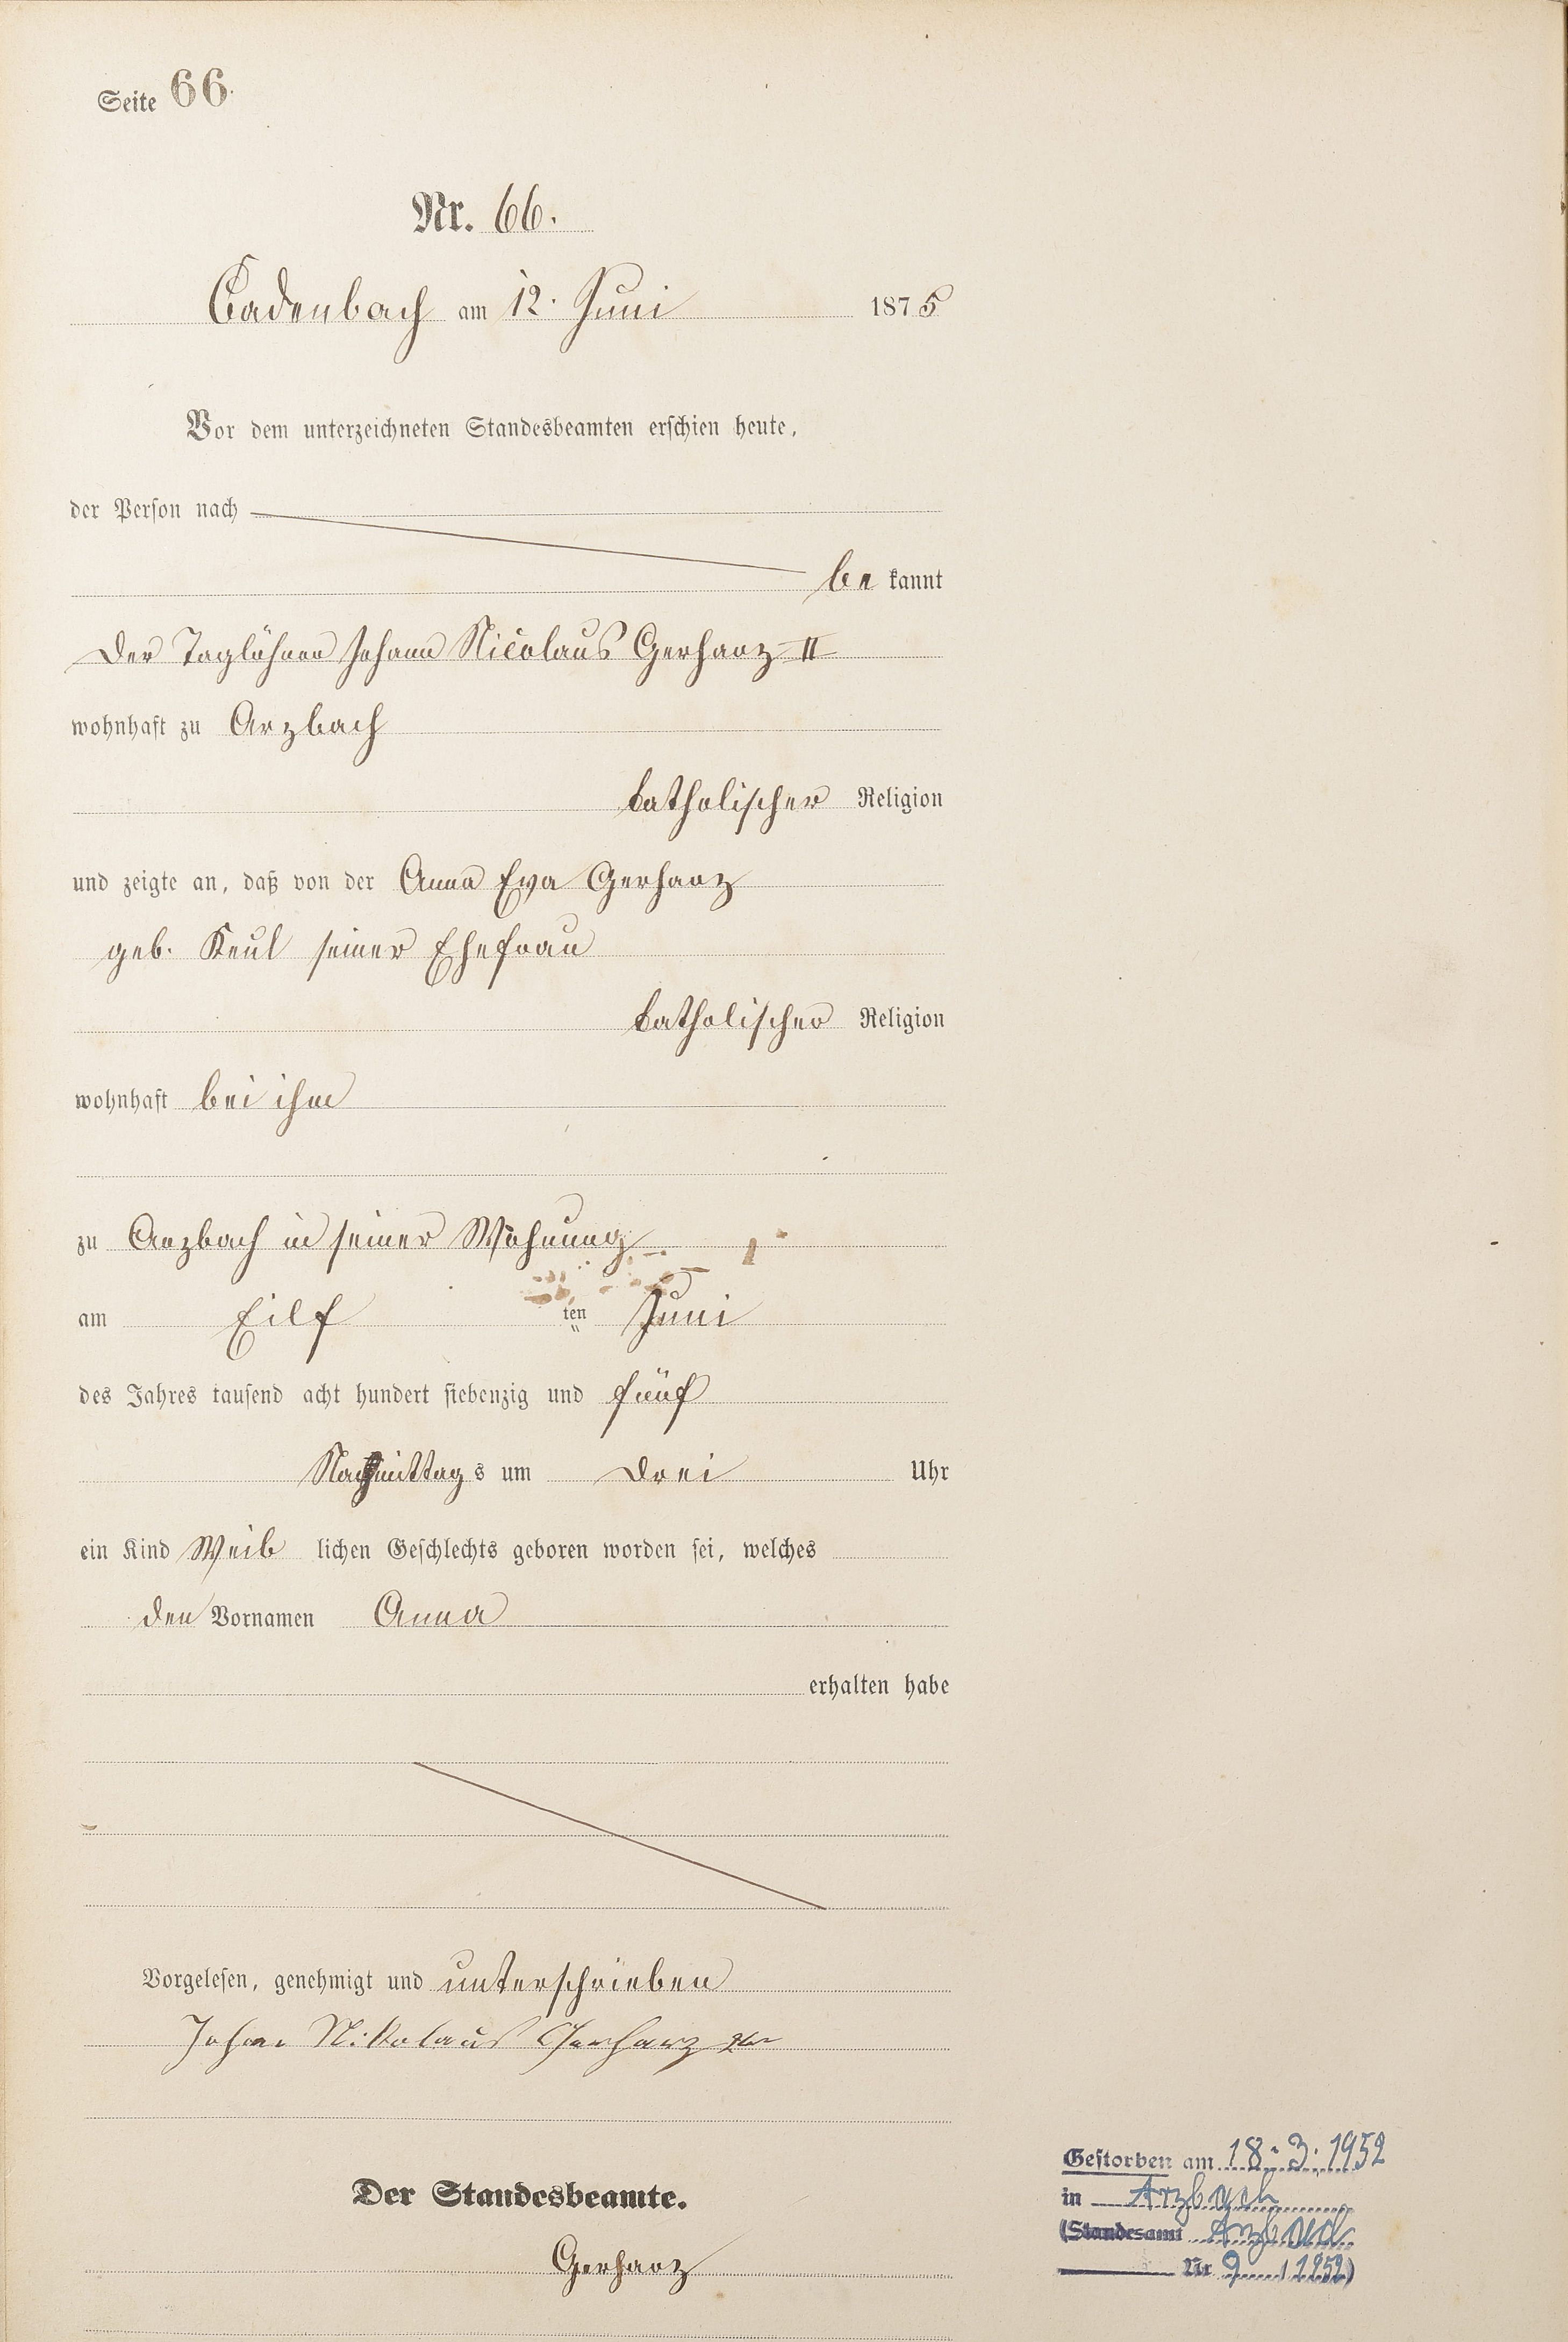 Seite 66.
Nr. 66.
Cadenbach am 12. Juni 1875
Vor dem unterzeichneten Standesbeamten erschien heute,
der Person nach
bekannt
Der Taglöhner Johann Nicolaus Gerharz II
wohnhaft zu Arzbach
katholischer Religion
und zeigte an, daß von der Anna Eva Gerharz
geb. Keul seiner Ehefrau
katholischer Religion
wohnhaft bei ihm
zu Arzbach in seiner Wohnung
am Eilf ten Juni
des Jahres tausend acht hundert siebenzig und fünf
Nachmittags um drei Uhr
ein Kind Weiblichen Geschlechts geboren worden sei, welches
den Vornamen Anna
erhalten habe
Vorgelesen, genehmigt und unterschrieben
Johann Nikolaus Gerharz 2ter
Der Standesbeamte.
Gerharz
Gestorben am 18.3.1952
in Arzbach
(Standesamt Arzbach
Nr 9 / 1952)